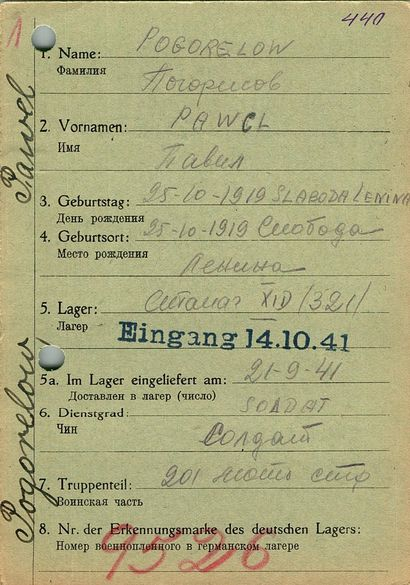 440
1
1. Name: POGORELOW
Фамилия
Погорисов
2. Vornamen: PAWEL
Имя
Павил
3. Geburtstag: 25-10-1919 SLABODA LENINA
День рождения
4. Geburtsort: 25-10-1919 Слобода
Место рождения
Ленина
5. Lager: Сталаг XID /321/
Лагер
Eingang 14.10.41
5a. Im Lager eingeliefert am: 21-9-41
Доставлен в лагер (число)
6. Dienstgrad: SOLDAT
Чин
Солдат
7. Truppenteil: 201
Воинская часть
8. Nr. der Erkennungsmarke des deutschen Lagers:
Номер военнопленного в германском лагере
9526
Pogorelow Pawel